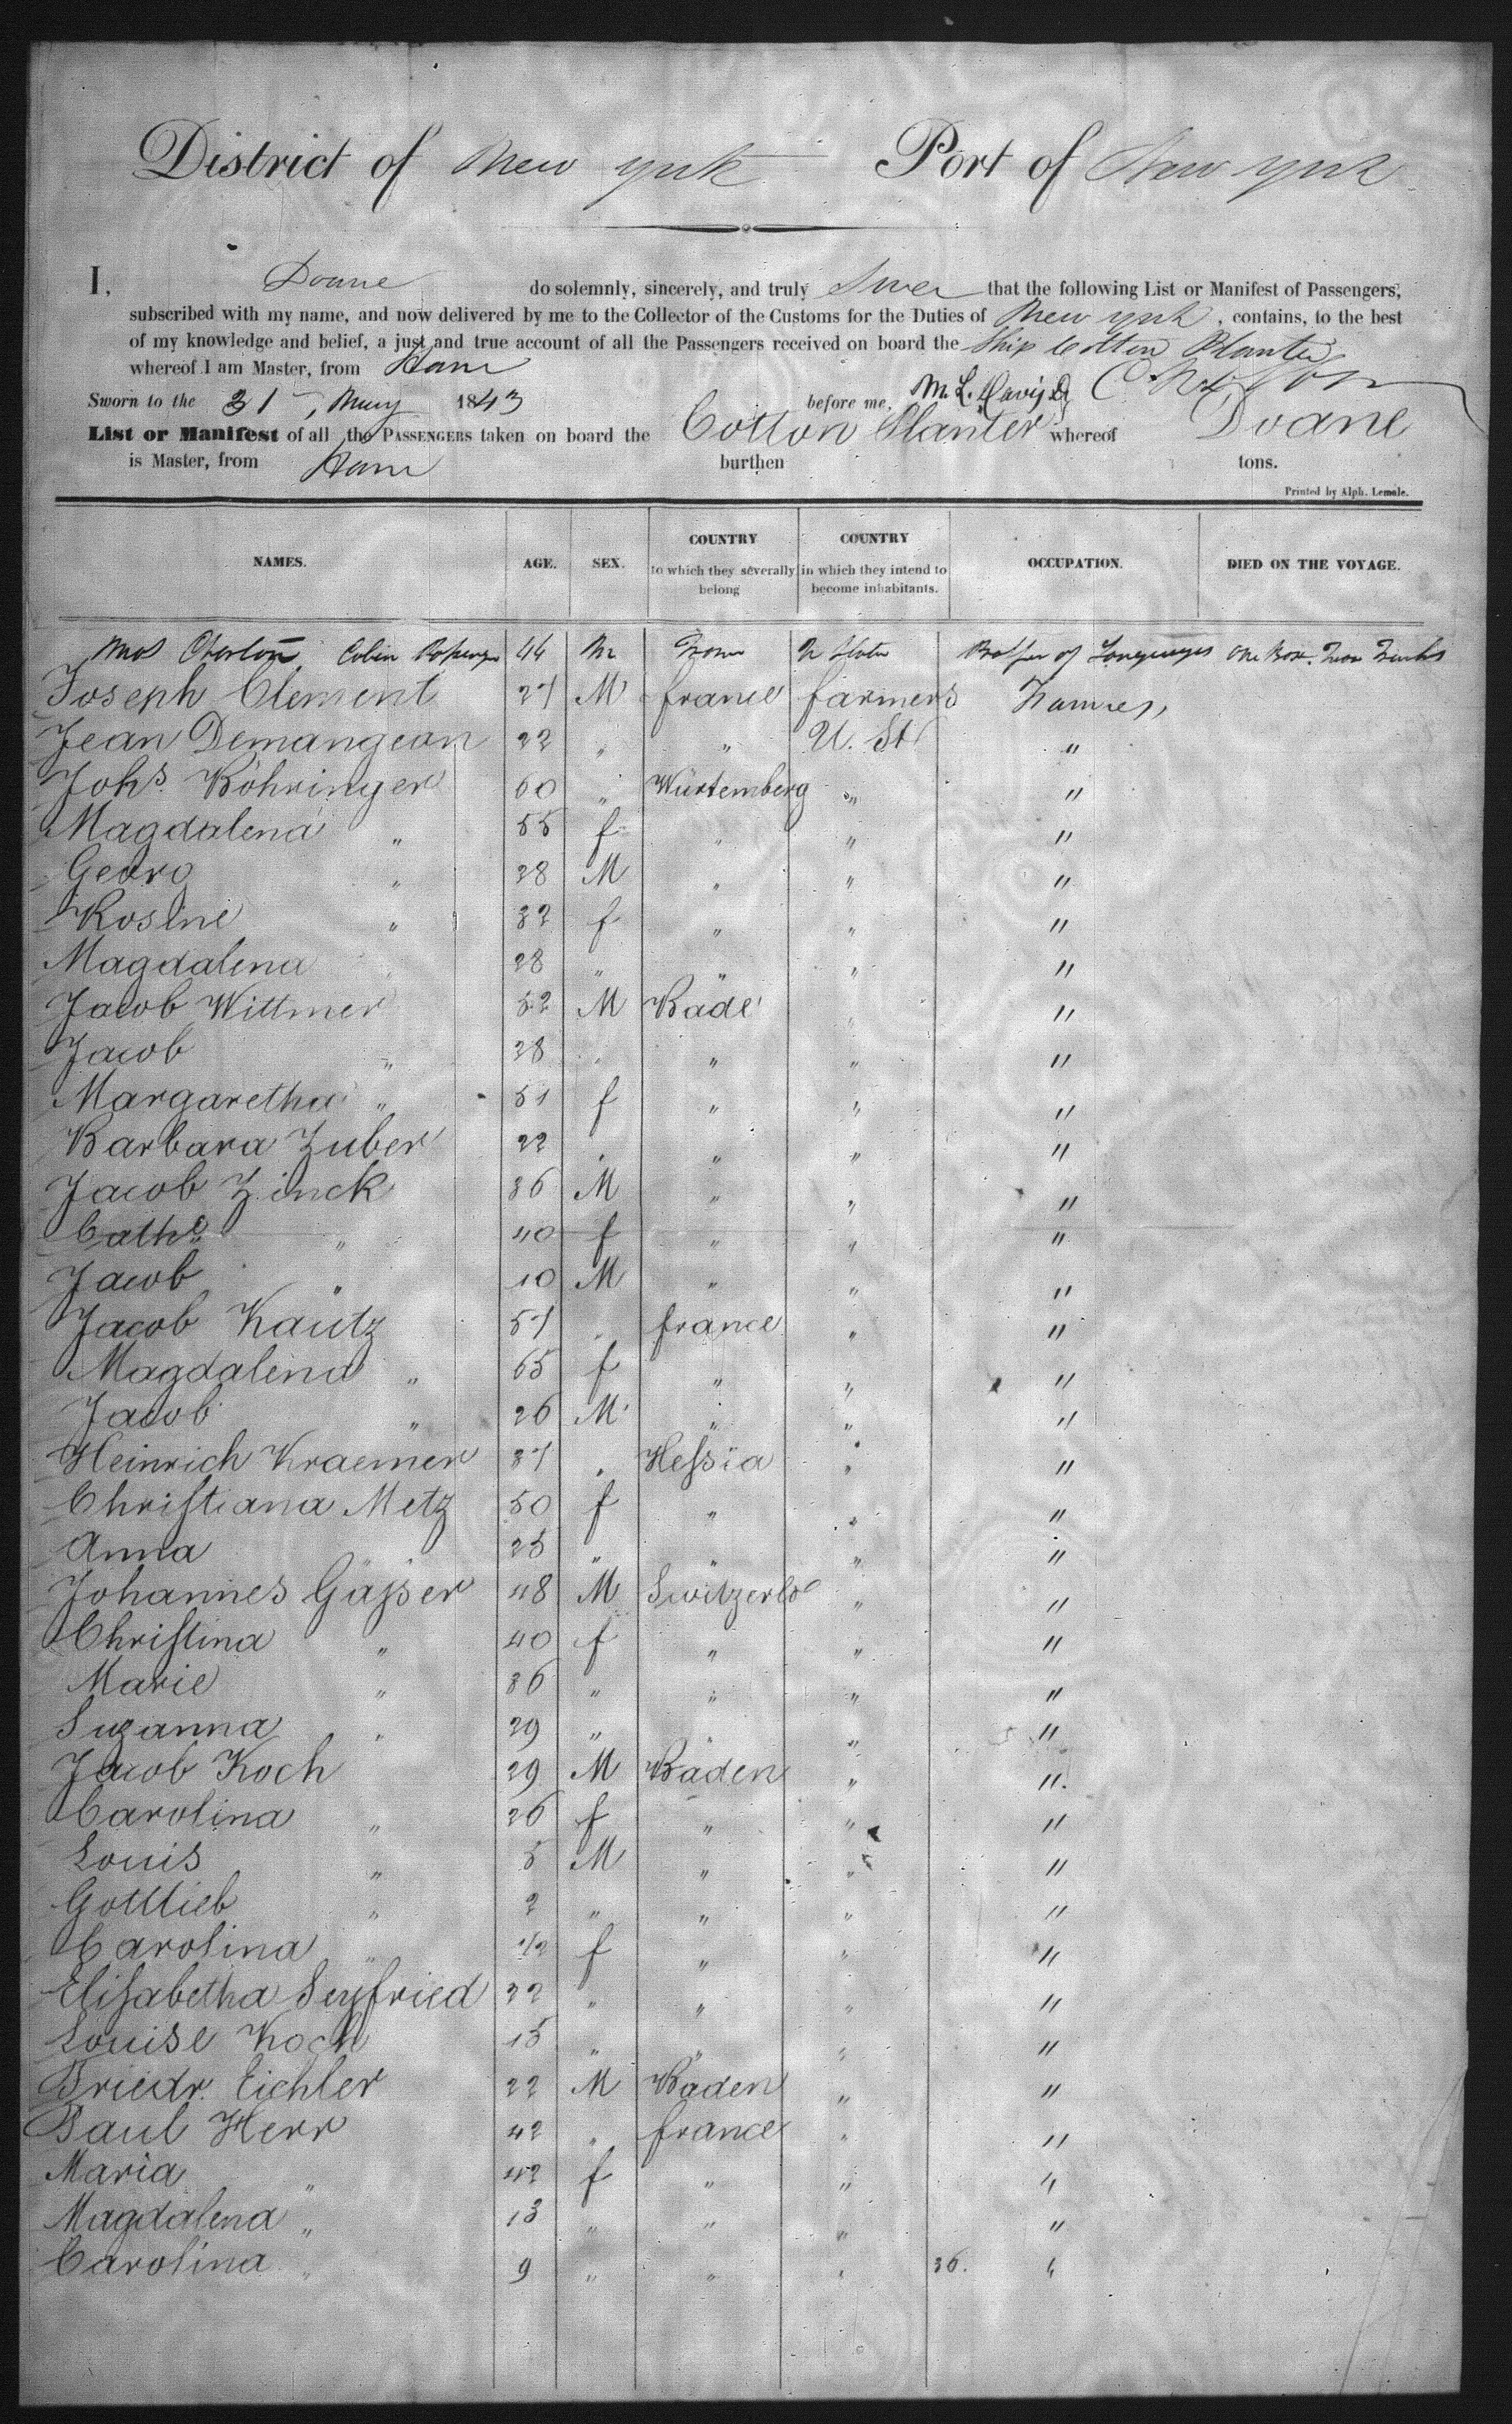 District of New York Port of New York
I, Doane do solemnly, sincerely, and truly Swear that the following List or Manifest of Passengers,
subscribed with my name, and now delivered by me to the Collector of the Customs for the Duties of New York, contains, to the best
of my knowledge and belief, a just and true account of all the Passengers received on board the Ship Cotton Planter
whereof I am Master, from Havre
Sworn to the 31 May 1843 before me,
List or Manifest of all the PASSENGERS taken on board the Cotton Planter whereof Doane
is Master, from Havre burthen tons.
Printed by Alph. Lemale.
NAMES. AGE. SEX. COUNTRY to which they severally belong COUNTRY in which they intend to become inhabitants. OCCUPATION. DIED ON THE VOYAGE.
44 M U States of Languages One Box
Joseph Clement 27 M france farmers
Jean Demangeon 22 " " U. St "
Johs. Böhringer 60 " Würtemberg " "
Magdalena " 55 f " " "
Georg " 28 M " " "
Rosine " 32 f " " "
Magdalena " 28 " " " "
Jacob Wittmer 52 M Bade " "
Jacob " 28 " " " "
Margaretha " 51 f " " "
Barbara Zuber 22 " " " "
Jacob Zinck 36 M " " "
Cathe " 40 f " " "
Jacob " 10 M " " "
Jacob Kautz 57 " france " "
Magdalena " 65 f " " "
Jacob " 26 M " " "
Heinrich Kraemer 37 " Heſsia " "
Chriſtiana Metz 50 f " " "
Anna 25 " " " "
Johannes Gajser 48 M Switzerld " "
Chriſtina " 40 f " " "
Marie " 36 " " " "
Suzanna " 29 " " " "
Jacob Koch 29 M Baden " "
Carolina " 26 f " " "
Louis " 5 M " " "
Gottlieb " 2 " " " "
Carolina " 1/2 f " " "
Eliſabetha Seyfried 22 " " " "
Louise Koch 15 " " " "
Friedr. Eichler 22 M Baden " "
Paul Herr 42 " france " "
Maria " 42 f " " "
Magdalena " 13 " " " "
Carolina " 9 " " " 36. "